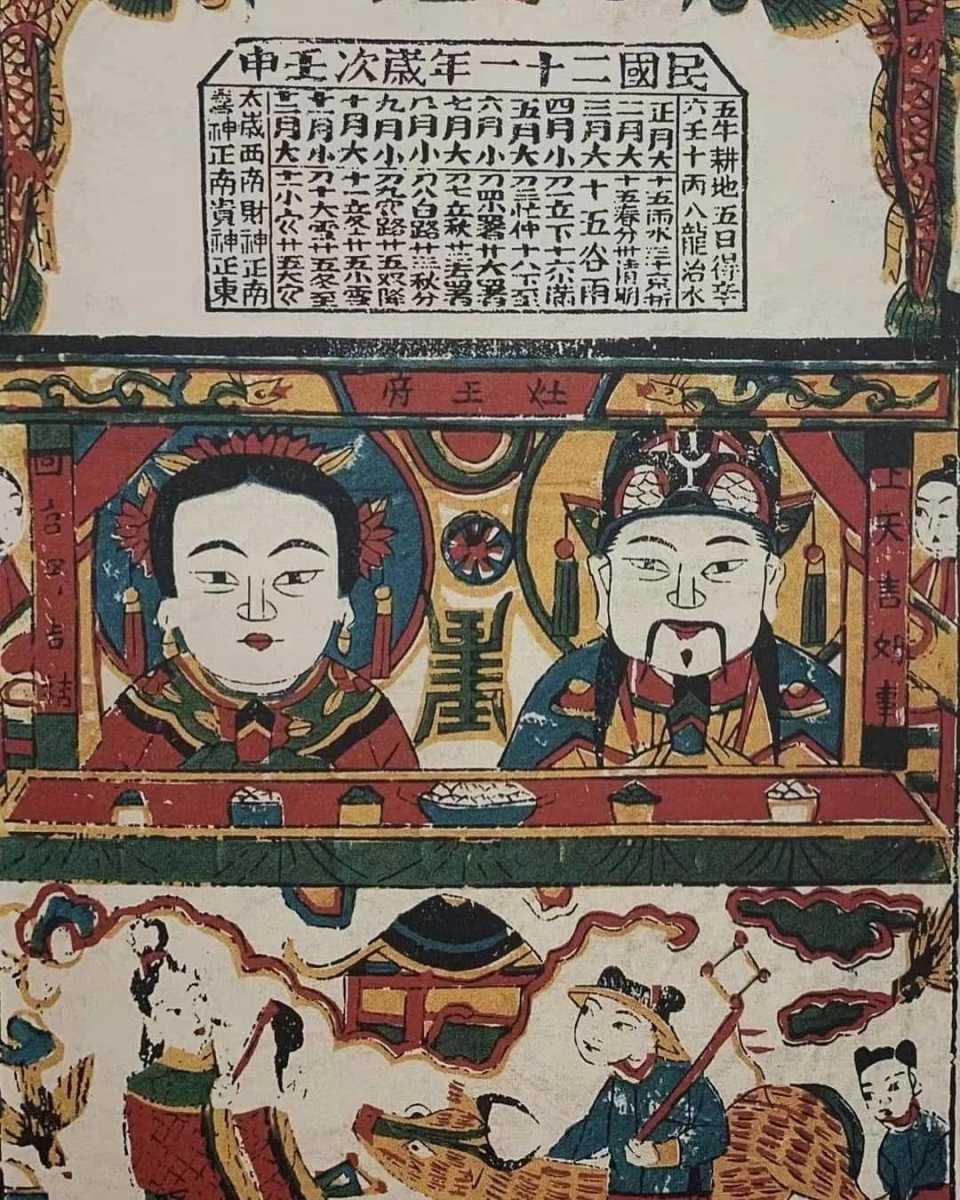 民國二十一年歲次壬申
五牛耕地五日得辛
六壬十丙八龍治水
正月大十五雨水三十京折
二月大十五春分卅清明
三月大十五谷雨
四月小刀立下十六小滿
五月大刀三忙仲十八下至
六月小刀四小署廿大署
七月大刀七立秋廿三署
八月小刀八白路廿三秋分
九月小刀九路廿五双降
十月大十一立冬廿五小雪
十一月小刀十大雪廿五冬至
十二月大十一小廿五大
太歲西南財神正南
喜神正南貴神正東
灶王府
上天言好事
回宮吉祥